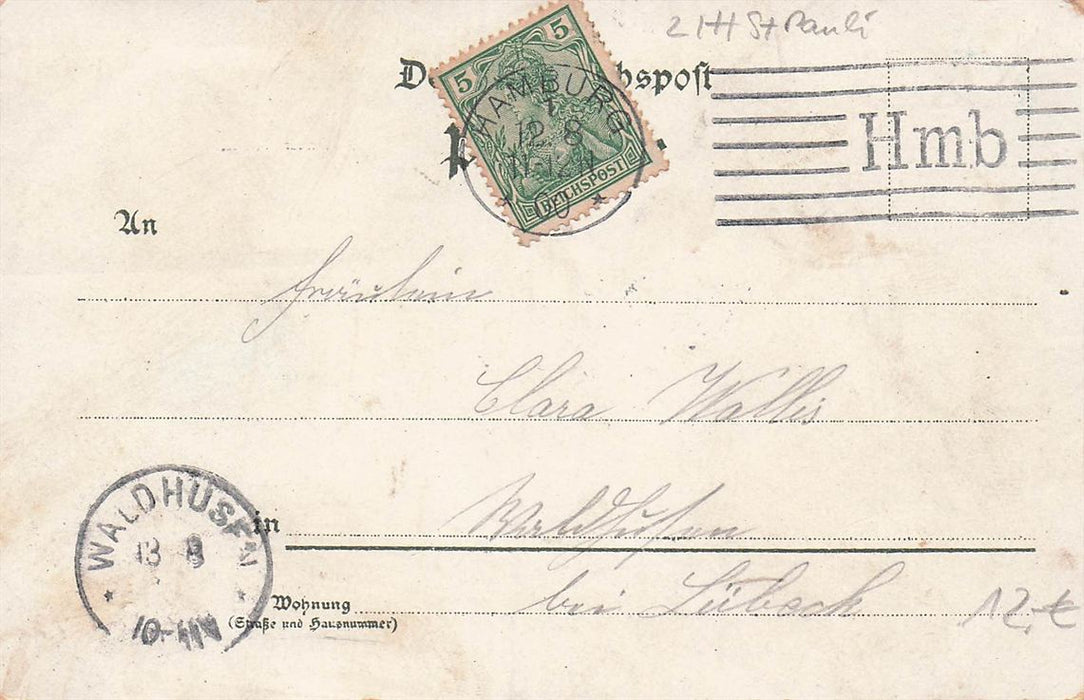 2 HH St Pauli
5 5
REICHSPOST
HAMBURG
12 8
11-12 V
Hmb
An
Fräulein
Clara Wallis
WALDHUSEN
13 8
10-11N
in Waldhusen
Wohnung bei Lübeck
(Straße und Hausnummer)
12,-€